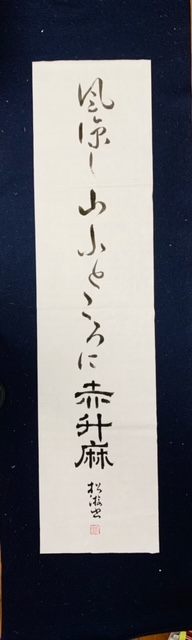 風涼し山ふところに赤升麻
松濤書